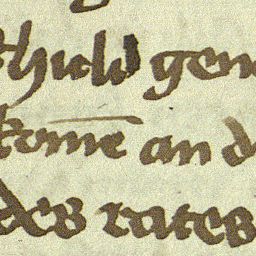 schuld gen
kome̅ an d
des rates